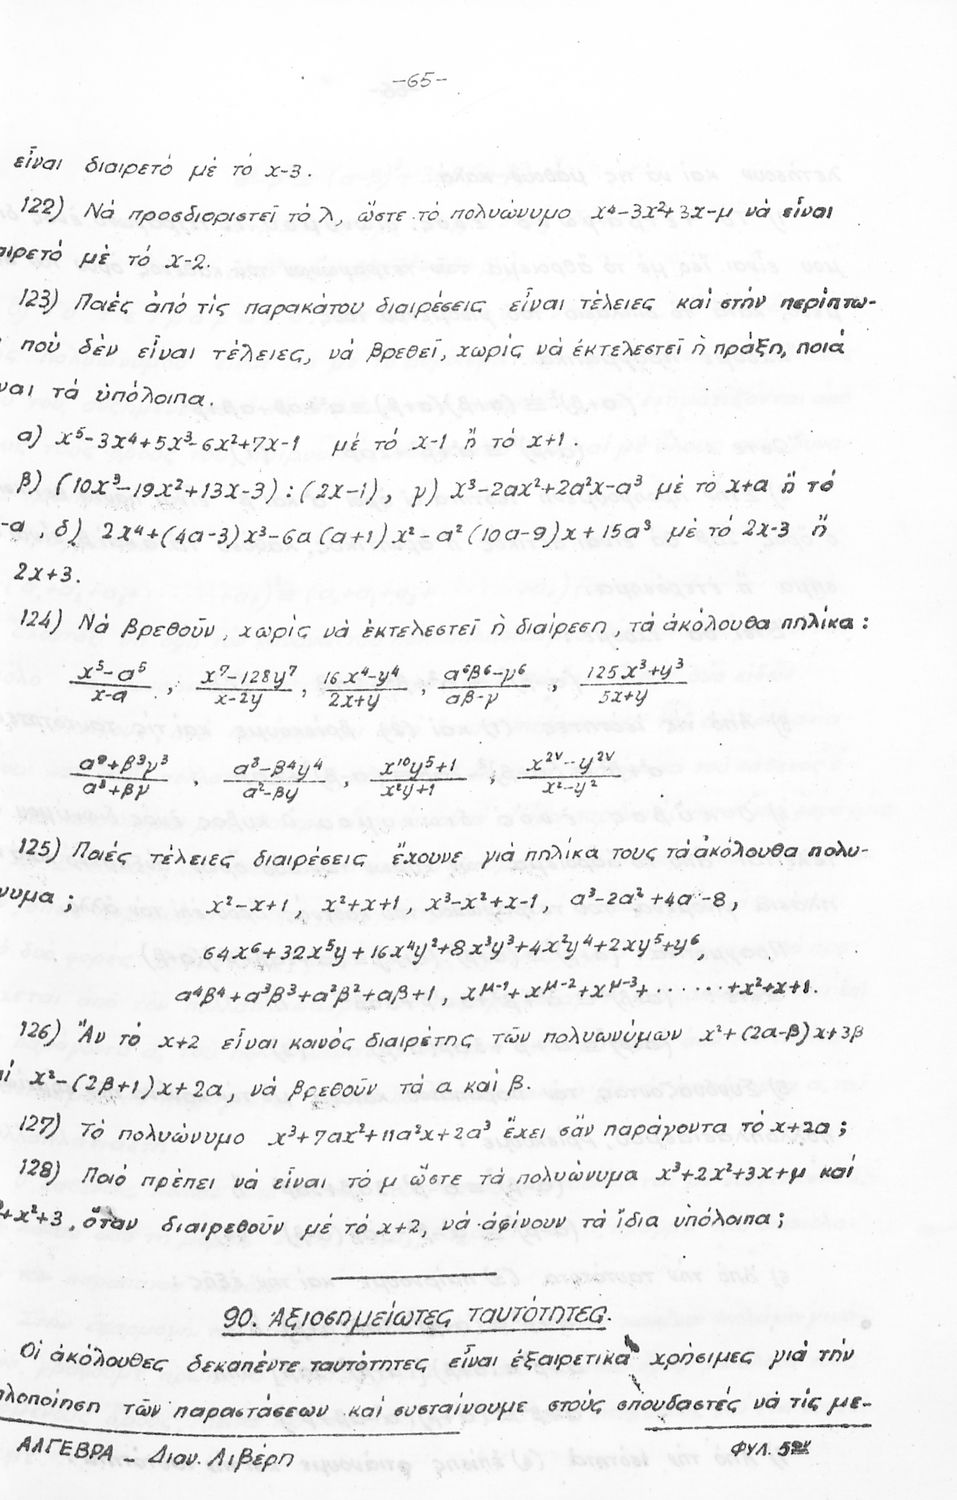 -65-
εἶναι διαιρετό μέ τό x-3.
122) Νά προσδιοριστεῖ τό λ, ὥστε τό πολυώνυμο x⁴-3x²+3x-μ νά εἶναι
αιρετό μέ τό x-2.
123) Ποιές ἀπό τίς παρακάτου διαιρέσεις εἶναι τέλειες καί στήν περίπτω-
πού δέν εἶναι τέλειες, νά βρεθεῖ, χωρίς νά ἐκτελεστεῖ ἡ πράξη, ποιά
ναι τά ὑπόλοιπα.
α) x⁵-3x⁴+5x³-6x²+7x-1 μέ τό x-1 ἤ τό x+1.
β) (10x³-19x²+13x-3) : (2x-1), γ) x³-2αx²+2α²x-α³ μέ τό x+α ἤ τό
-α, δ) 2x⁴+(4α-3)x³-6α(α+1)x²-α²(10α-9)x+15α³ μέ τό 2x-3 ἤ
2x+3.
124) Νά βρεθοῦν, χωρίς νά ἐκτελεστεῖ ἡ διαίρεση, τά ἀκόλουθα πηλίκα:
x⁵-α⁵/x-α, x⁷-128y⁷/x-2y, 16x⁴-y⁴/2x+y, α⁶β⁶-γ⁶/αβ-γ, 125x³+y³/5x+y
α⁹+β³γ³/α³+βγ, α³-β⁴y⁴/α²-βy, x¹⁰y⁵+1/x²y+1, x²ᵛ-y²ᵛ/x²-y²
125) Ποιές τέλειες διαιρέσεις ἔχουνε γιά πηλίκα τους τά ἀκόλουθα πολυ-
νυμα; x²-x+1, x²+x+1, x³-x²+x-1, α³-2α²+4α-8,
64x⁶+32x⁵y+16x⁴y²+8x³y³+4x²y⁴+2xy⁵+y⁶,
α⁴β⁴+α³β³+α²β²+αβ+1, xᵘ⁻¹+xᵘ⁻²+xᵘ⁻³+......+x²+x+1.
126) Ἄν τό x+2 εἶναι κοινός διαιρέτης τῶν πολυωνύμων x²+(2α-β)x+3β
αί x²-(2β+1)x+2α, νά βρεθοῦν τά α καί β.
127) Τό πολυώνυμο x³+7αx²+11α²x+2α³ ἔχει σάν παράγοντα τό x+2α;
128) Ποιό πρέπει νά εἶναι τό μ ὥστε τά πολυώνυμα x³+2x²+3x+μ καί
+x²+3, ὅταν διαιρεθοῦν μέ τό x+2, νά ἀφίνουν τά ἴδια ὑπόλοιπα;
90. Ἀξιοσημείωτες ταυτότητες.
Οἱ ἀκόλουθες δεκαπέντε ταυτότητες εἶναι ἐξαιρετικά χρήσιμες γιά τήν
λοποίηση τῶν παραστάσεων καί συσταίνουμε στούς σπουδαστές νά τίς με-
ΑΛΓΕΒΡΑ - Διον. Λιβέρη ΦΥΛ. 5ον